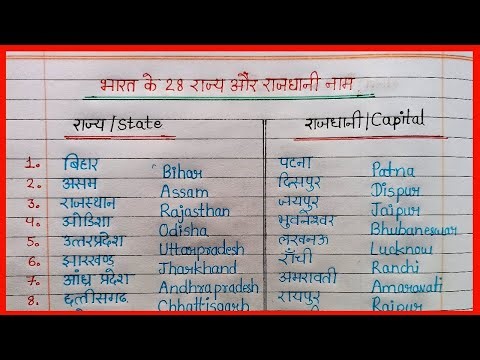 भारत के 28 राज्य और राजधानी नाम
राज्य/State राजधानी/Capital
1. बिहार Bihar पटना Patna
2. असम Assam दिसपुर Dispur
3. राजस्थान Rajasthan जयपुर Jaipur
4. ओडिशा Odisha भुवनेश्वर Bhubaneswar
5. उत्तरप्रदेश Uttarpradesh लखनऊ Lucknow
6. झारखण्ड Jharkhand राँची Ranchi
7. आंध्र प्रदेश Andhrapradesh अमरावती Amaravati
8. छत्तीसगढ़ Chhattisgarh रायपुर Raipur